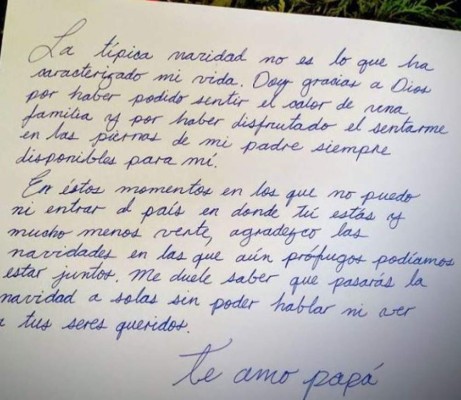 La típica navidad no es lo que ha
caracterizado mi vida. Doy gracias a Dios
por haber podido sentir el calor de una
familia y por haber disfrutado el sentarme
en las piernas de mi padre siempre
disponibles para mí.
En éstos momentos en los que no puedo
ni entrar al país en donde tú estás y
mucho menos verte, agradezco las
navidades en las que aún prófugos podíamos
estar juntos. Me duele saber que pasarás la
navidad a solas sin poder hablar ni ver
a tus seres queridos.
te amo papá